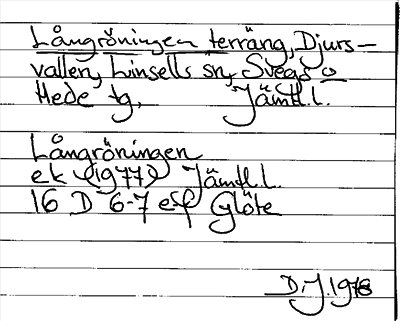 Långröningen terräng, Djurs-
vallen, Linsells sn, Svegs o
Hede tg, Jämtl.l.
Långröningen
ek (1977) Jämtl.l.
16 D 6-7 ef Glöte
D.J. 1978